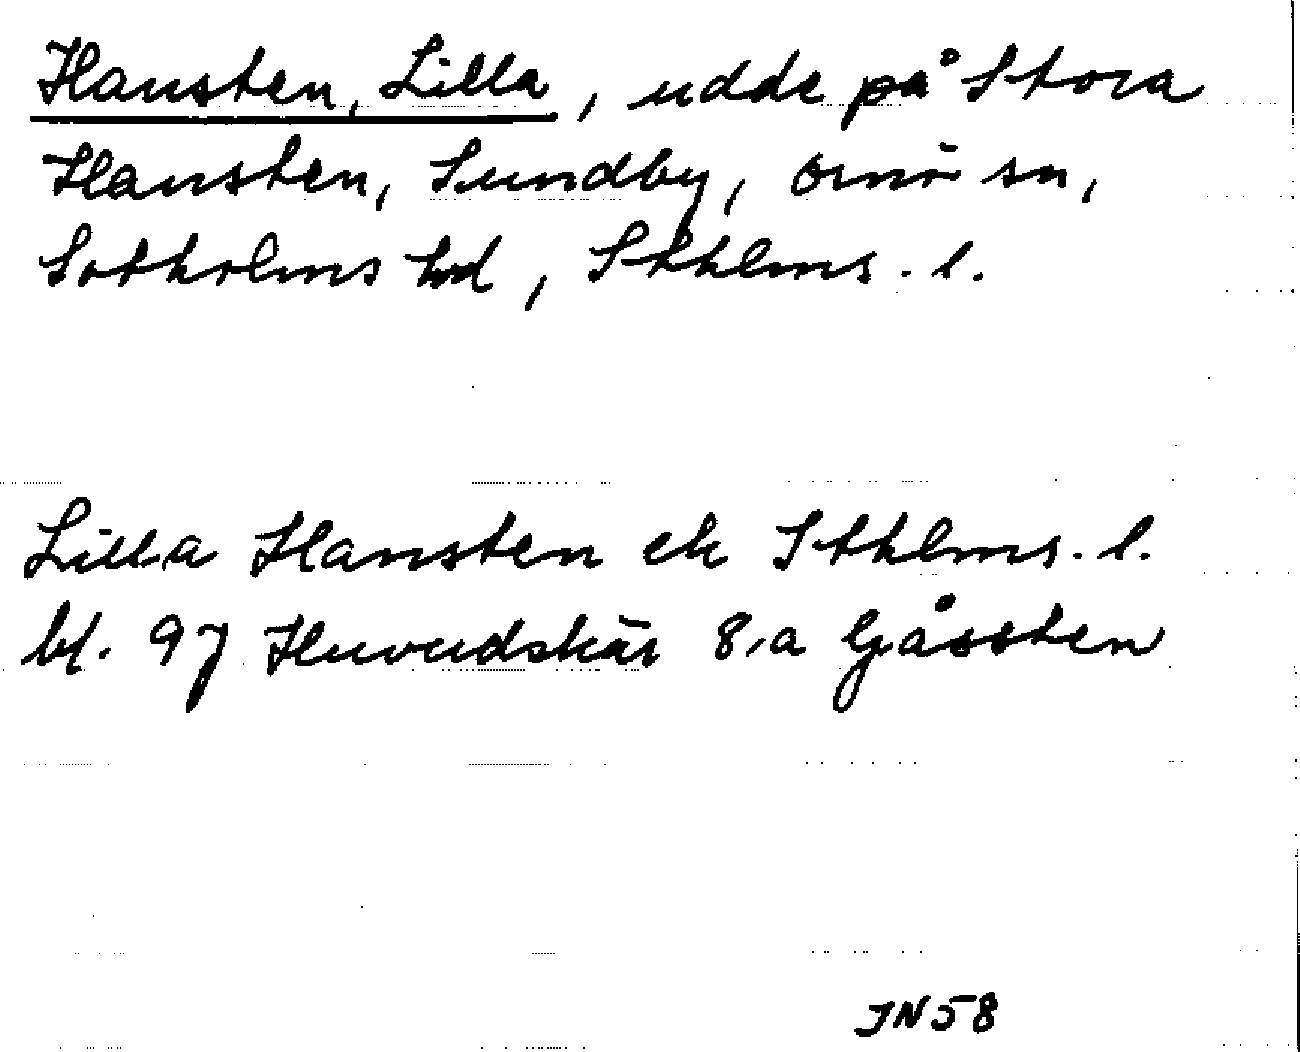 Hansten, Lilla, udde på Stora
Hansten, Sundby, Ornö sn,
Sotholms hd, Sthlms. l.
Lilla Hansten ek Sthlms. l.
bl. 97 Huvudskär 8,a Gåssten
JN58